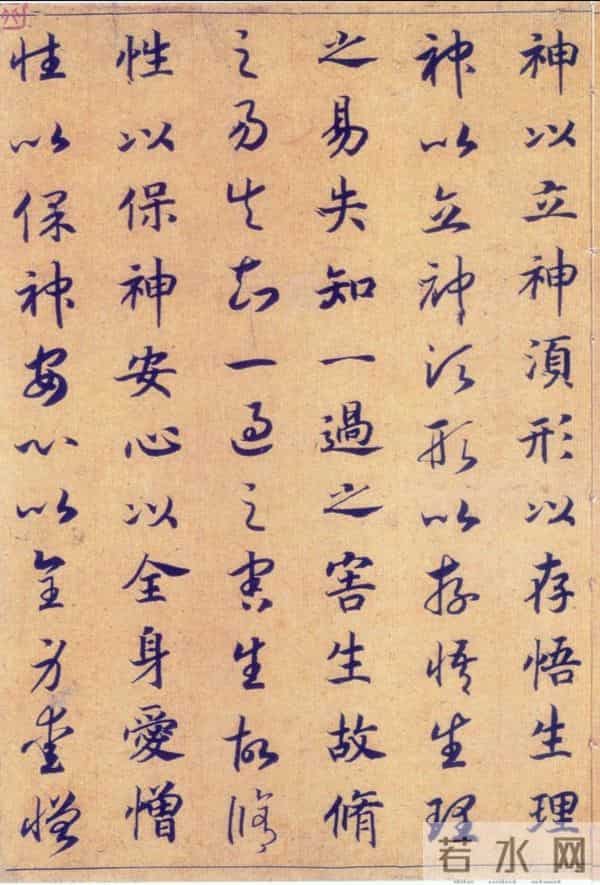 神以立神須形以存悟生理
神以立神須形以存悟生理
之易失知一過之害生故脩
之易失知一過之害生故脩
性以保神安心以全身愛憎
性以保神安心以全身愛憎
若水网